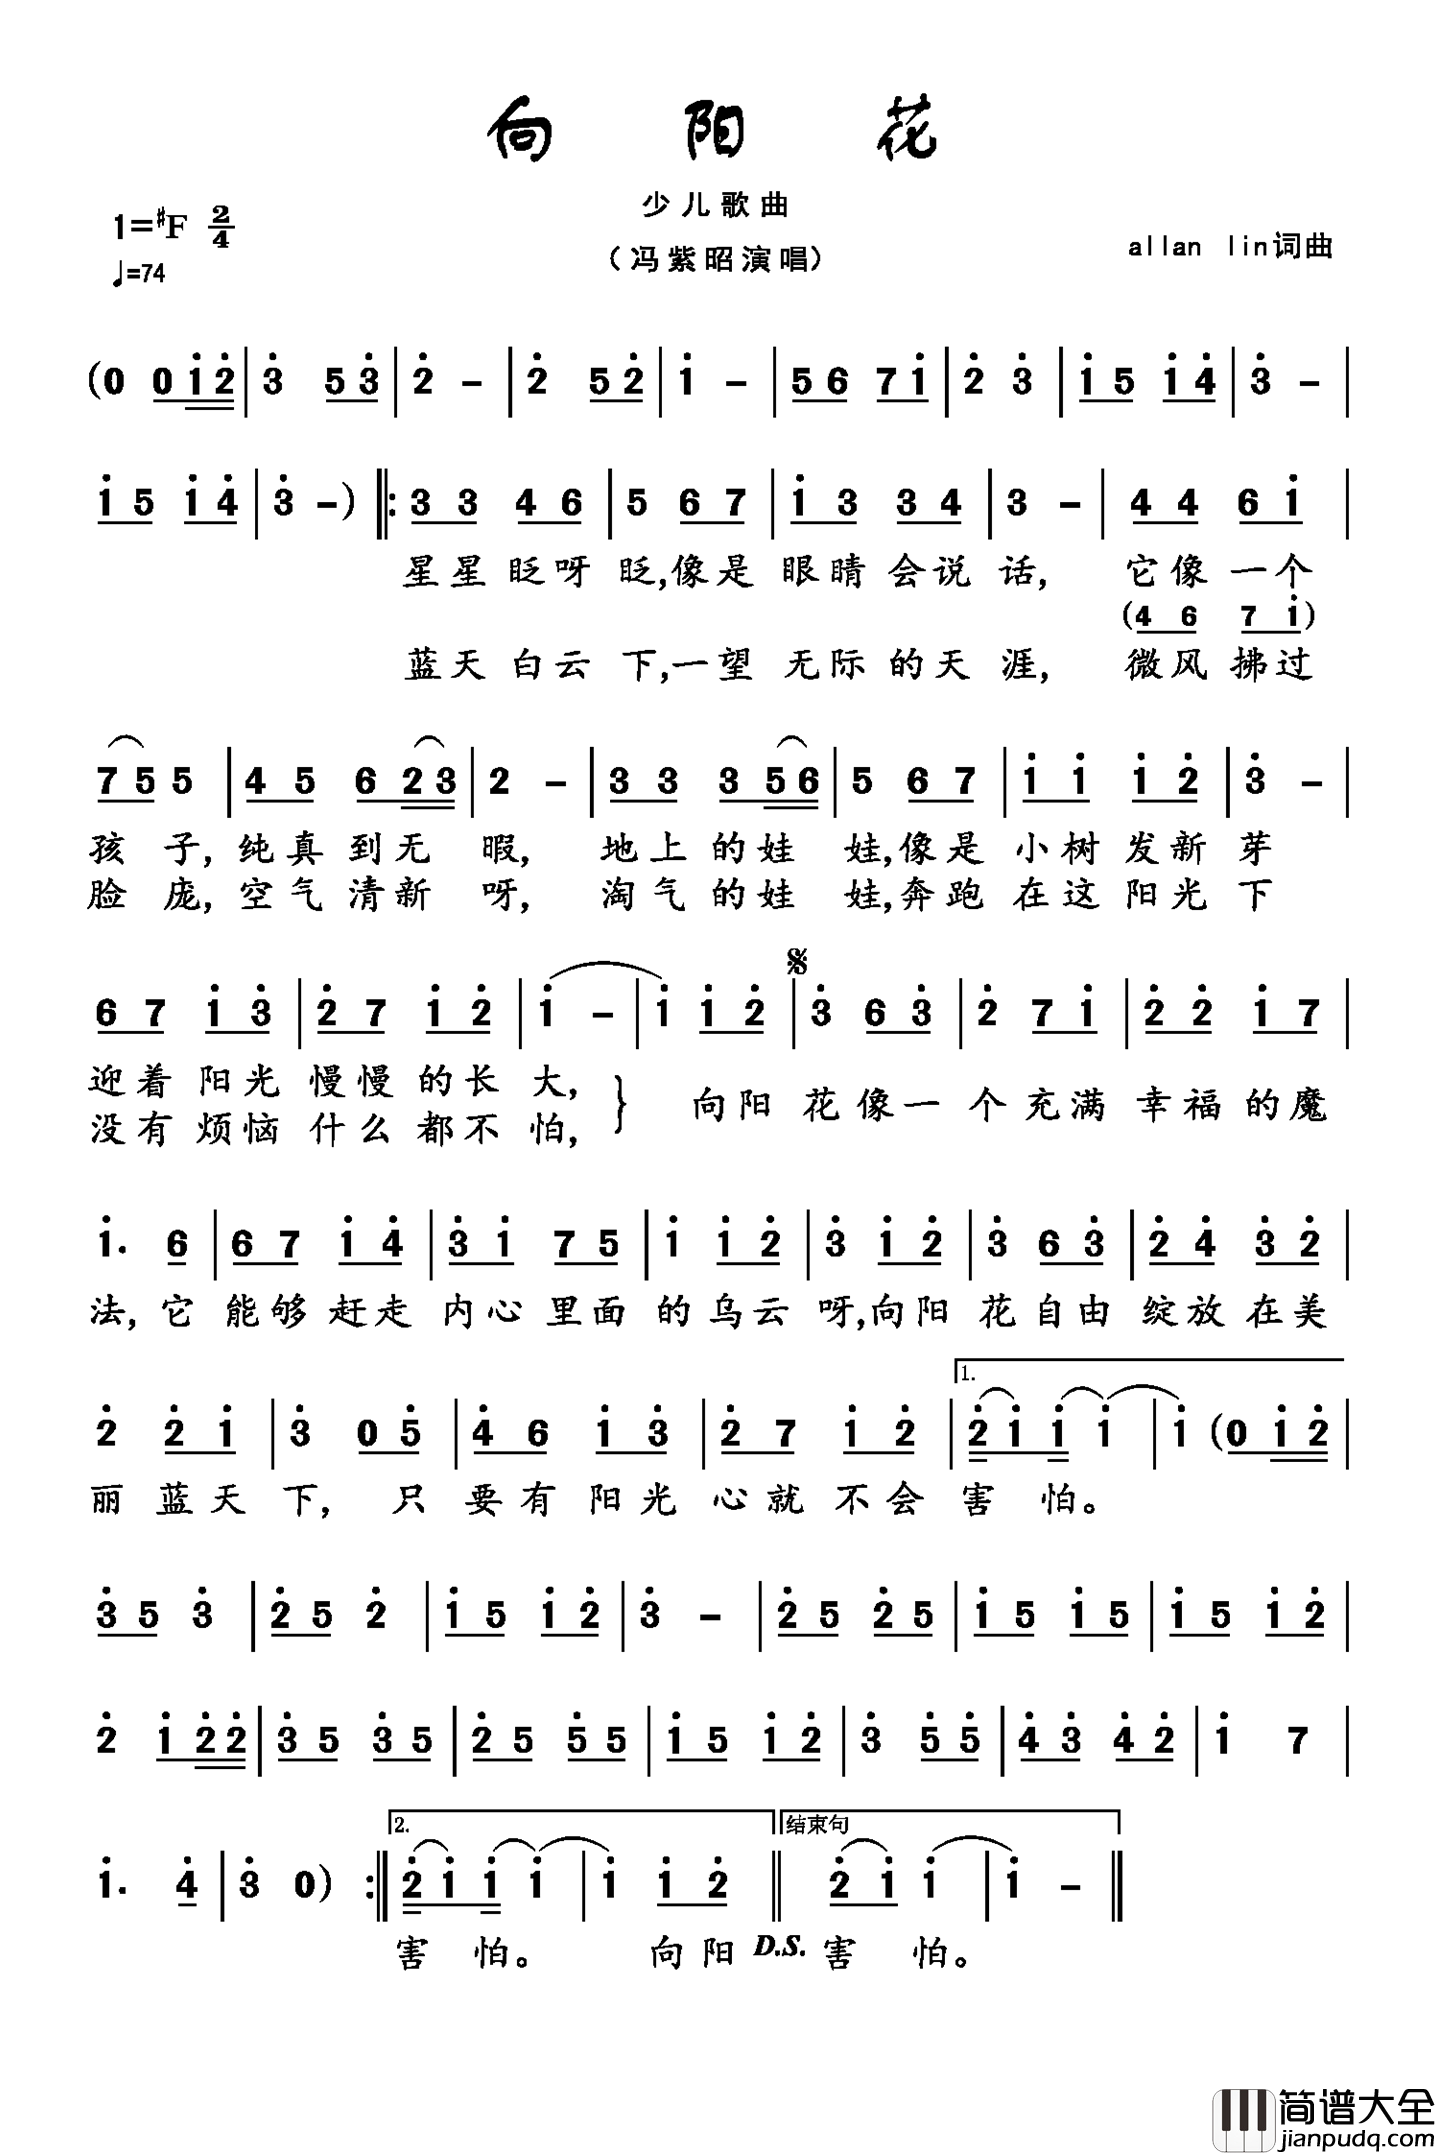 向 阳 花
少儿歌曲
1=#F 2/4
(冯紫昭演唱)
allan lin词曲
♩=74
(0 0 1̇ 2̇ | 3̇ 5 3̇ | 2̇ - | 2̇ 5 2̇ | 1̇ - | 5 6 7 1̇ | 2̇ 3̇ | 1̇ 5 1̇ 4̇ | 3̇ - |
1̇ 5 1̇ 4̇ | 3̇ -) ‖: 3 3 4 6 | 5 6 7 | 1̇ 3 3 4 | 3 - | 4 4 6 1̇ |
星星眨呀眨,像是眼睛会说话, 它像一个
(4 6 7 1̇)
蓝天白云下,一望无际的天涯, 微风拂过
7 5 5 | 4 5 6 2 3 | 2 - | 3 3 3 5 6 | 5 6 7 | 1̇ 1̇ 1̇ 2̇ | 3̇ - |
孩子,纯真到无暇, 地上的娃娃,像是小树发新芽
脸庞,空气清新呀, 淘气的娃娃,奔跑在这阳光下
𝄋
6 7 1̇ 3̇ | 2̇ 7 1̇ 2̇ | 1̇ - | 1̇ 1̇ 2̇ | 3̇ 6 3̇ | 2̇ 7 1̇ | 2̇ 2̇ 1̇ 7 |
迎着阳光慢慢的长大,
向阳花像一个充满幸福的魔
没有烦恼什么都不怕,
1̇. 6 | 6 7 1̇ 4̇ | 3̇ 1̇ 7 5 | 1̇ 1̇ 2̇ | 3̇ 1̇ 2̇ | 3̇ 6 3̇ | 2̇ 4̇ 3̇ 2̇ |
法,它能够赶走内心里面的乌云呀,向阳花自由绽放在美
1.
2̇ 2̇ 1̇ | 3̇ 0 5̇ | 4̇ 6 1̇ 3̇ | 2̇ 7 1̇ 2̇ | 2̇ 1̇ 1̇ 1̇ | 1̇ (0 1̇ 2̇ |
丽蓝天下, 只要有阳光心就不会害怕。
3̇ 5 3̇ | 2̇ 5 2̇ | 1̇ 5 1̇ 2̇ | 3̇ - | 2̇ 5 2̇ 5 | 1̇ 5 1̇ 5 | 1̇ 5 1̇ 2̇ |
2̇ 1̇ 2̇ 2̇ | 3̇ 5 3̇ 5 | 2̇ 5 5̇ 5 | 1̇ 5 1̇ 2̇ | 3̇ 5̇ 5̇ | 4̇ 3̇ 4̇ 2̇ | 1̇ 7 |
2. 结束句
1̇. 4̇ | 3̇ 0) :‖ 2̇ 1̇ 1̇ 1̇ | 1̇ 1̇ 2̇ ‖ 2̇ 1̇ 1̇ | 1̇ - ‖
害怕。 向阳 D.S. 害怕。
简谱大全
jianpudq.com